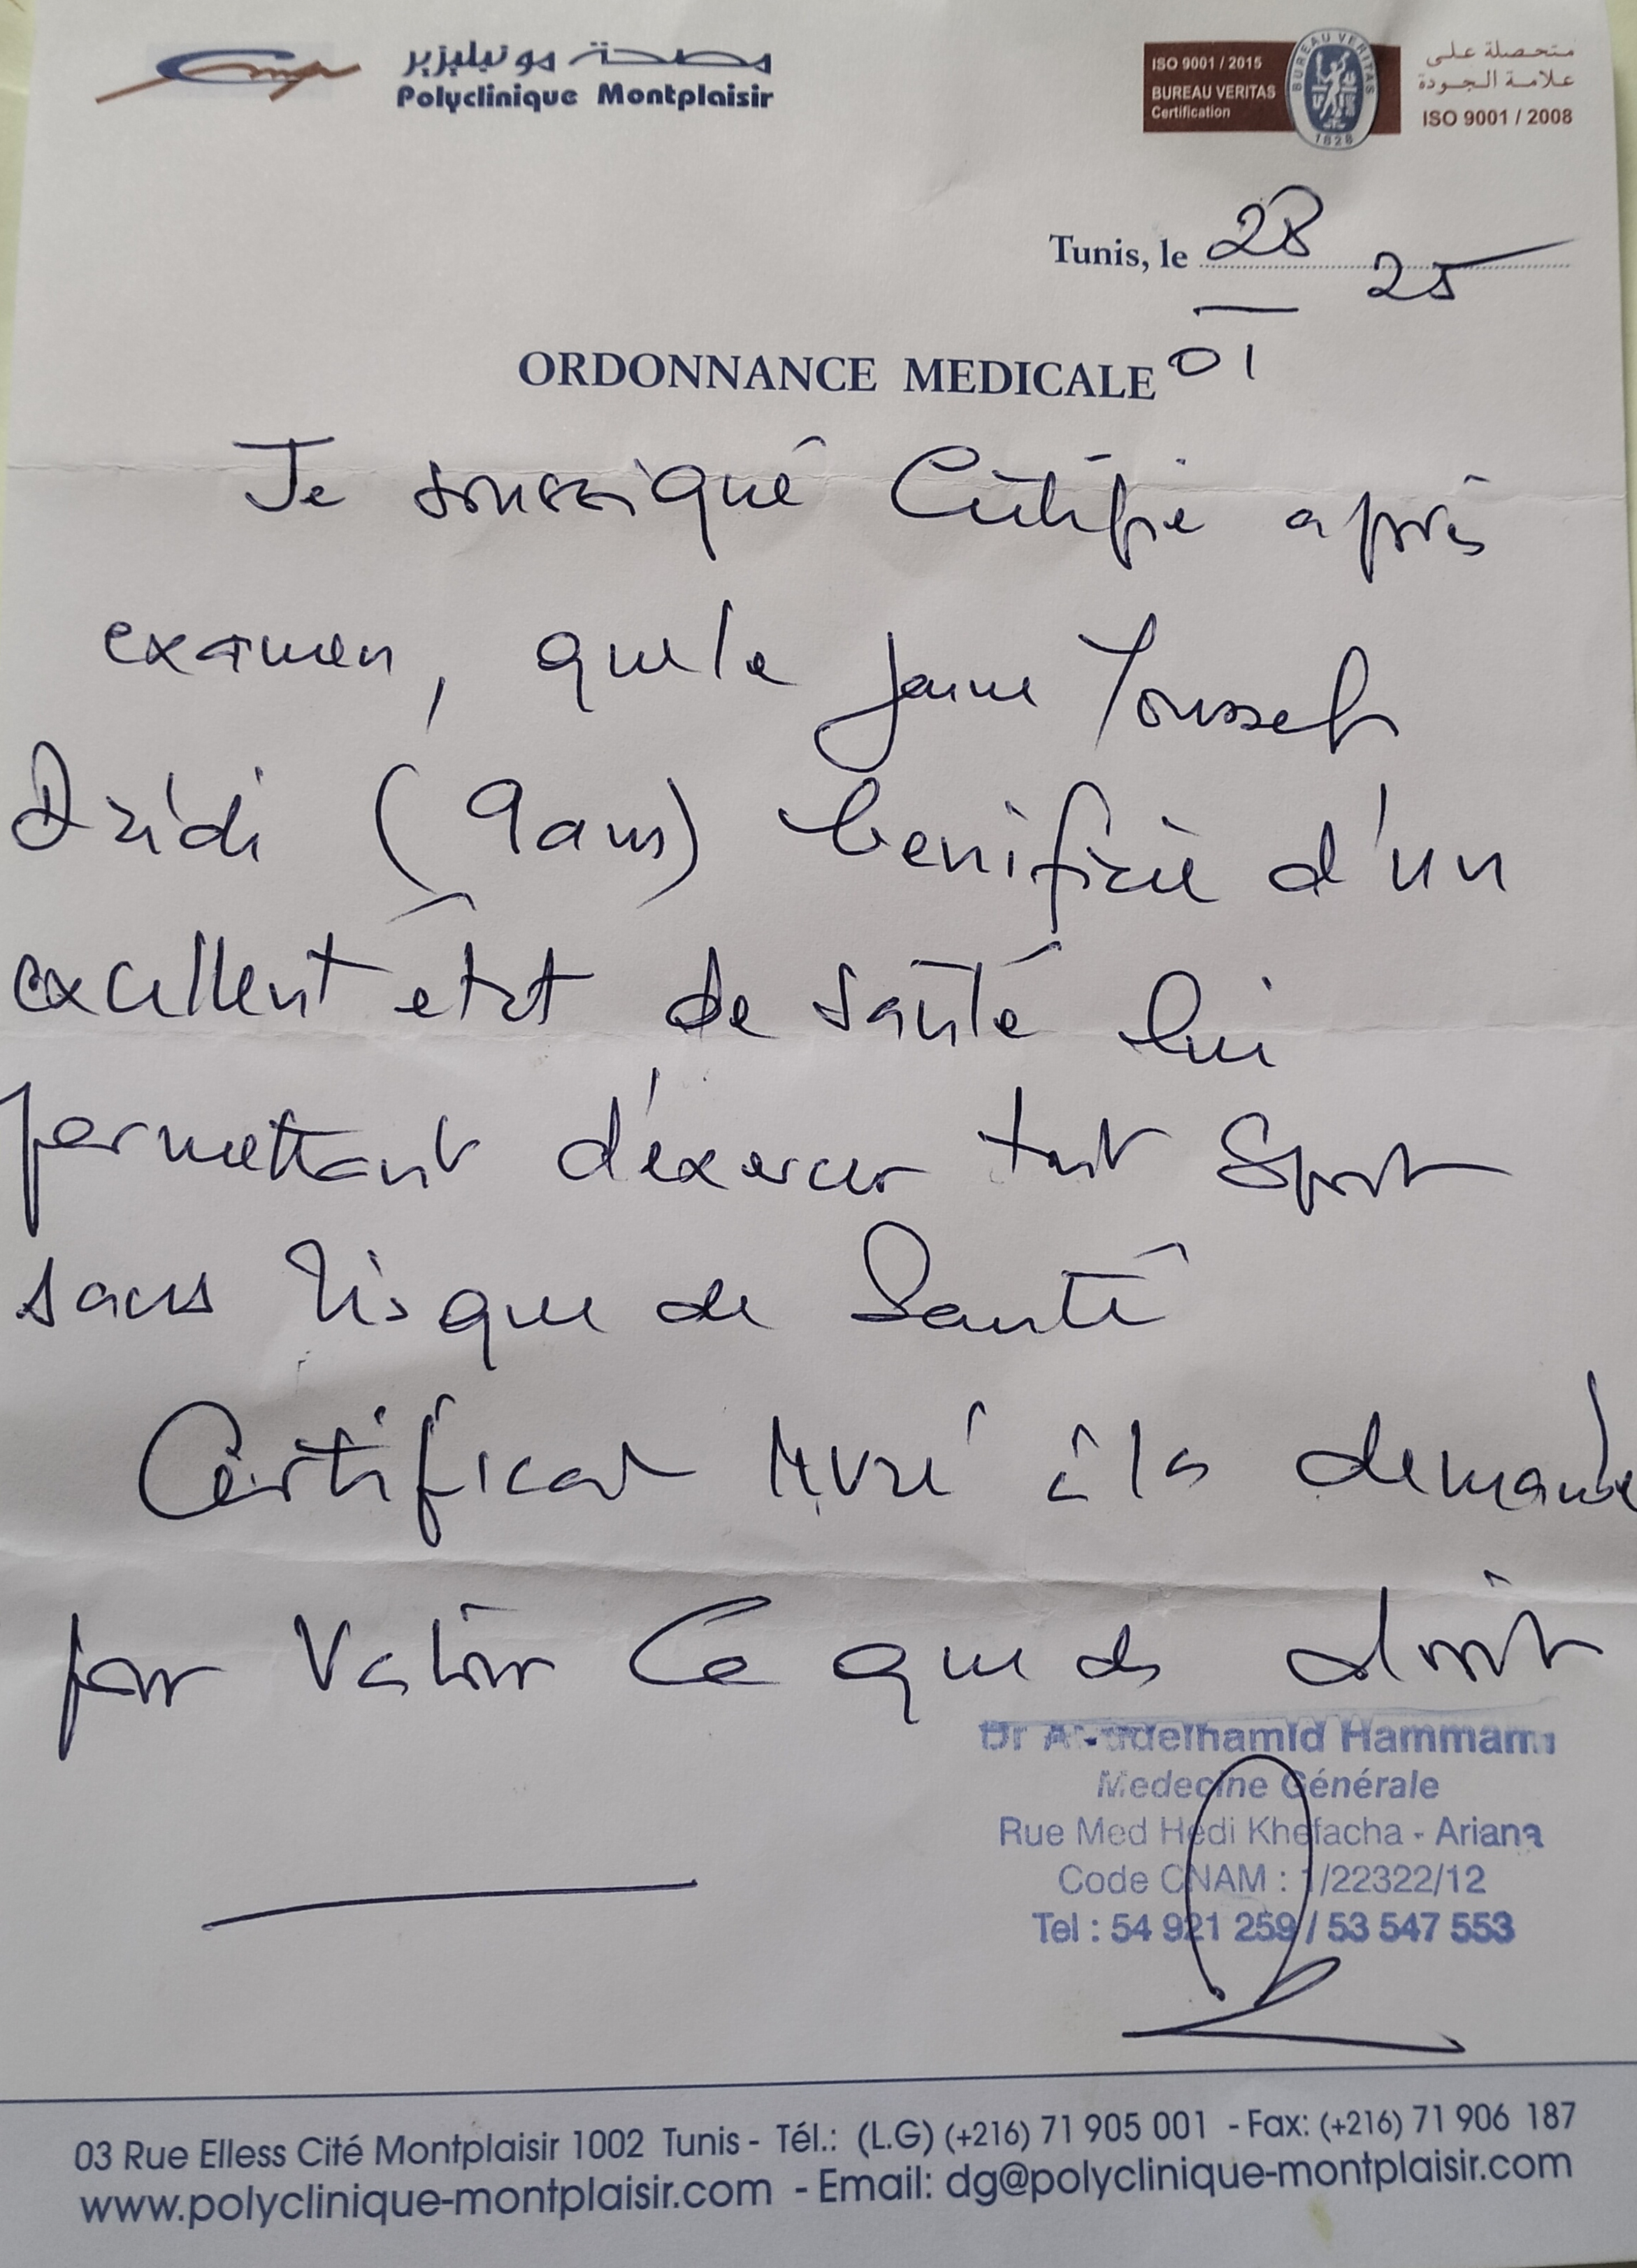 مصحة مونبليزير
Polyclinique Montplaisir
ISO 9001 / 2015
BUREAU VERITAS
Certification
BUREAU VERITAS
1828
متحصلة على
علامة الجودة
ISO 9001 / 2008
Tunis, le 28 25
01
ORDONNANCE MEDICALE
Je soussigné Certifie après
examen, que le jeune Youssef
Dridi (9 ans) benificie d'un
excellent état de santé lui
permettant d'éxercer tout Sport
sans risque de Santé
Certificat livré à la demande
pour Valoir Ce que de droit
Dr Abdelhamid Hammami
Medecine Générale
Rue Med Hedi Khefacha - Ariana
Code CNAM : 1/22322/12
Tel : 54 921 259 / 53 547 553
03 Rue Elless Cité Montplaisir 1002 Tunis - Tél.: (L.G) (+216) 71 905 001 - Fax: (+216) 71 906 187
www.polyclinique-montplaisir.com - Email: dg@polyclinique-montplaisir.com